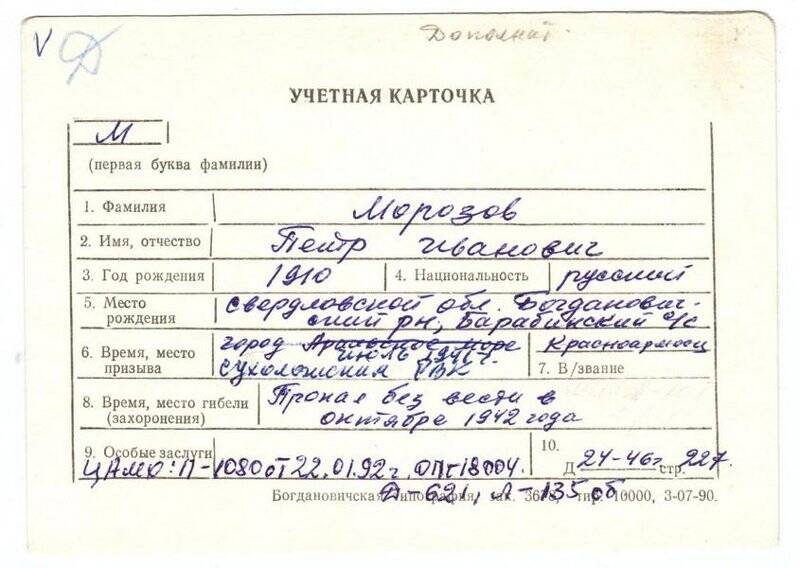 V Д Дополнит.
УЧЕТНАЯ КАРТОЧКА
М
(первая буква фамилии)
1. Фамилия Морозов
2. Имя, отчество Петр Иванович
3. Год рождения 1910 4. Национальность русский
5. Место рождения свердловской обл. Богданович-
ский рн, Барабинский с/с
6. Время, место призыва город Аральское море
июль 1941 г.
сухоложским РВК
Красноармеец
7. В/звание
8. Время, место гибели (захоронения) Пропал без вести в
октябре 1942 года
9. Особые заслуги
10.
ЦАМО: П-1080 от 22.01.92 г. оп. 18004.
Д 24-46г стр. 227.
Д-621, Л-135 об.
Богдановичская типография, зак. 3678, тир. 10000, 3-07-90.